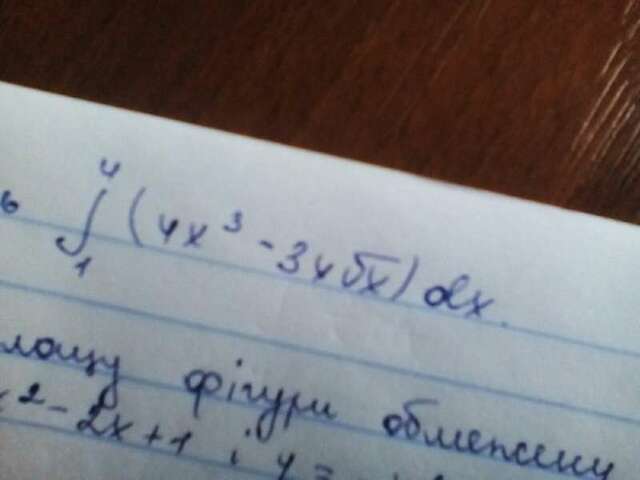 ь ∫₁⁴ (4x³ - 3x√x) dx.
лощу фігури обмежену
x² - 2x + 1 і y =